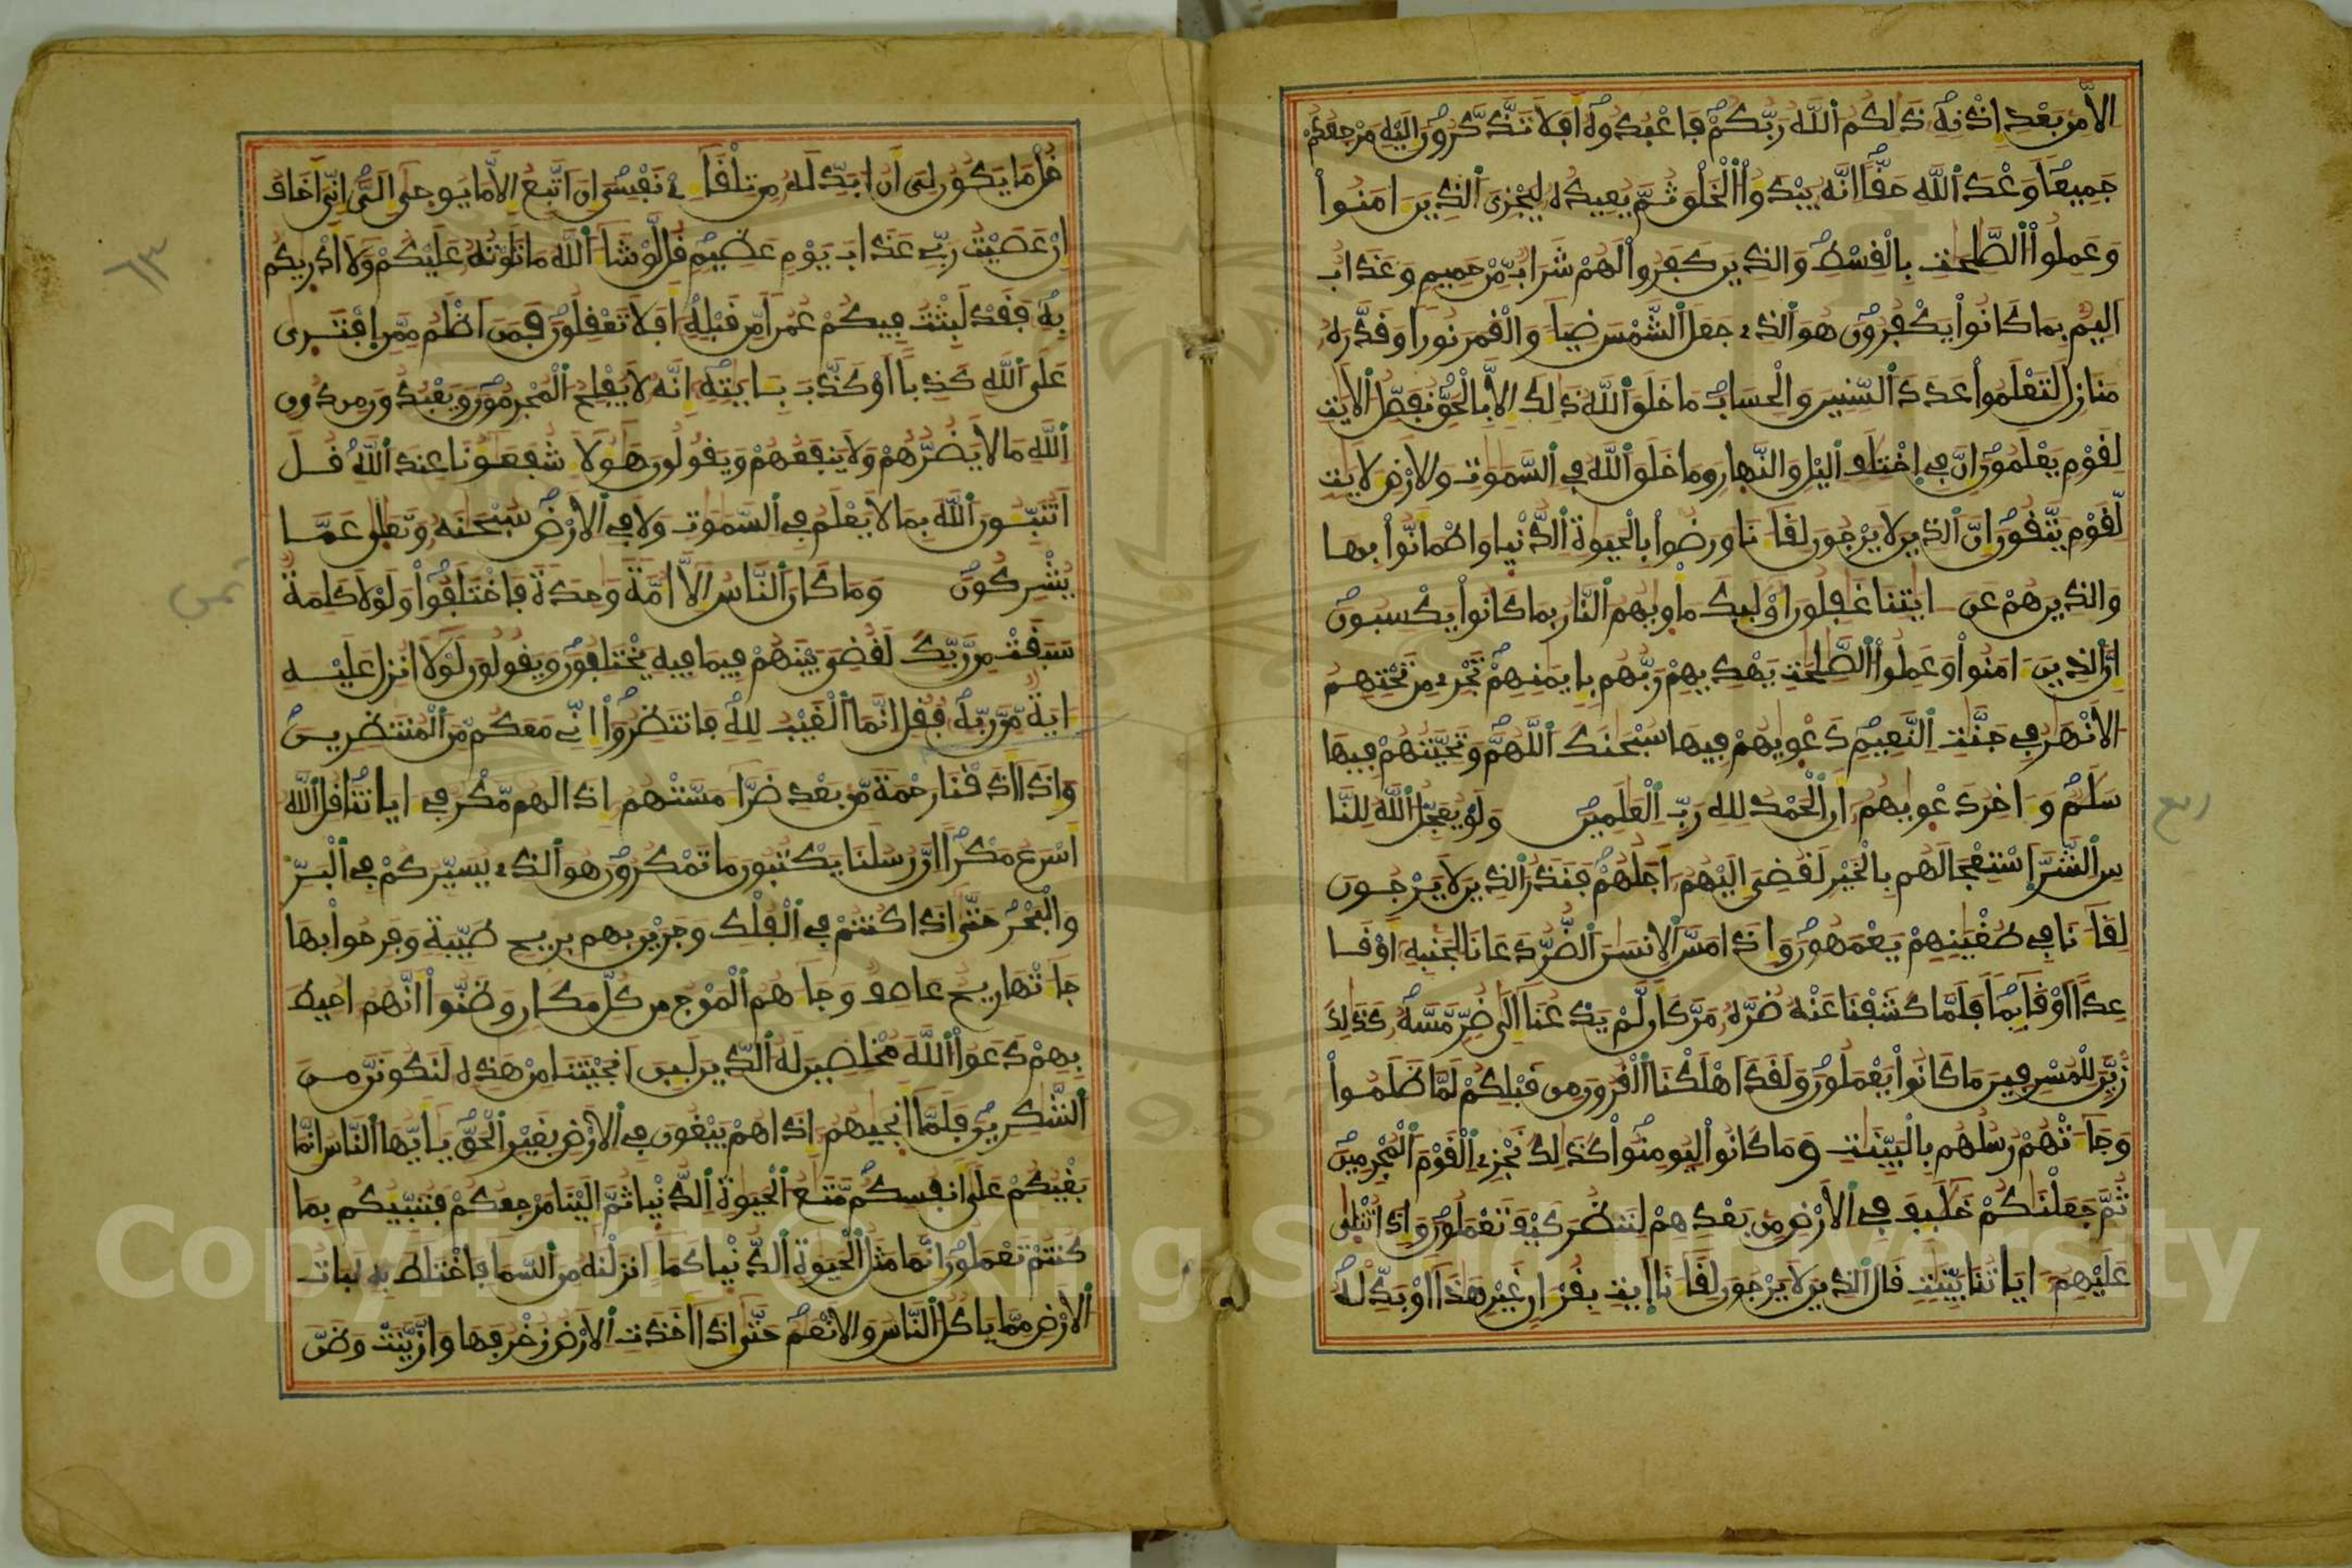 الا من بعد اذنه ذلكم الله ربكم فاعبدوه افلا تذكرون اليه مرجعكم
جميعا وعد الله حقا انه يبدؤا الخلق ثم يعيده ليجزى الذين امنوا
وعملوا الصلحت بالقسط والذين كفروا لهم شراب من حميم وعذاب
اليم بما كانوا يكفرون هو الذى جعل الشمس ضيا والقمر نورا وقدره
منازل لتعلموا عدد السنين والحساب ما خلق الله ذلك الا بالحق نفصل الايت
لقوم يعلمون ان فى اختلف اليل والنهار وما خلق الله فى السموت والارض لايت
لقوم يتقون ان الذين لا يرجون لقانا ورضوا بالحيوة الدنيا واطمانوا بها
والذين هم عن ايتنا غفلون اوليك ماويهم النار بما كانوا يكسبون
ان الذين امنوا وعملوا الصلحت يهديهم ربهم بايمنهم تجرى من تحتهم
الانهر فى جنت النعيم دعويهم فيها سبحنك اللهم وتحيتهم فيها
سلم واخر دعويهم ان الحمد لله رب العلمين ولو يعجل الله للنا
ربع
س الشر استعجالهم بالخير لقضى اليهم اجلهم فنذر الذين لا يرجون
لقانا فى طغينهم يعمهون واذا مس الانسن الضر دعانا لجنبه او قا
عدا او قايما فلما كشفنا عنه ضره مر كان لم يدعنا الى ضر مسه كذلك
زين للمسرفين ما كانوا يعملون ولقد اهلكنا القرون من قبلكم لما ظلموا
وجاتهم رسلهم بالبينت وما كانوا ليومنوا كذلك نجزى القوم المجرمين
ثم جعلنكم خليف فى الارض من بعدهم لننظر كيف تعملون واذا تتلى
عليهم اياتنا بينت قال الذين لا يرجون لقانا ايت بقران غير هذا او بدله
قل ما يكون لى ان ابدله من تلقاى نفسى ان اتبع الا ما يوحى الى انى اخاف
ان عصيت ربى عذاب يوم عظيم قل لو شا الله ما تلوته عليكم ولا ادريكم
٦٣
به فقد لبثت فيكم عمرا من قبله افلا تعقلون فمن اظلم ممن افترى
على الله كذبا او كذب بايته انه لا يفلح المجرمون ويعبدون من دون
الله ما لا يضرهم ولا ينفعهم ويقولون هولا شفعونا عند الله قل
اتنبون الله بما لا يعلم فى السموت ولا فى الارض سبحنه وتعلى عما
يشركون وما كان الناس الا امة وحدة فاختلفوا ولولا كلمة
ثمن
سبقت من ربك لقضى بينهم فيما فيه يختلفون ويقولون لولا انزل عليه
اية من ربه فقل انما الغيب لله فانتظروا انى معكم من المنتظرين
واذا اذقنا رحمة من بعد ضرا مستهم اذا لهم مكر فى اياتنا قل الله
اسرع مكرا ان رسلنا يكتبون ما تمكرون هو الذى يسيركم فى البر
والبحر حتى اذا كنتم فى الفلك وجرين بهم بريح طيبة وفرحوا بها
جاتها ريح عاصف وجاهم الموج من كل مكان وظنوا انهم احيط
بهم دعوا الله مخلصين له الدين لين انجيتنا من هذه لنكونن من
الشكرين فلما انجيهم اذا هم يبغون فى الارض بغير الحق يايها الناس انما
بغيكم على انفسكم متع الحيوة الدنيا ثم الينا مرجعكم فننبيكم بما
كنتم تعملون انما مثل الحيوة الدنيا كما انزلنه من السما فاختلط به نبات
الارض مما ياكل الناس والانعم حتى اذا اخذت الارض زخرفها وازينت وظن
Copyright © King Saud University